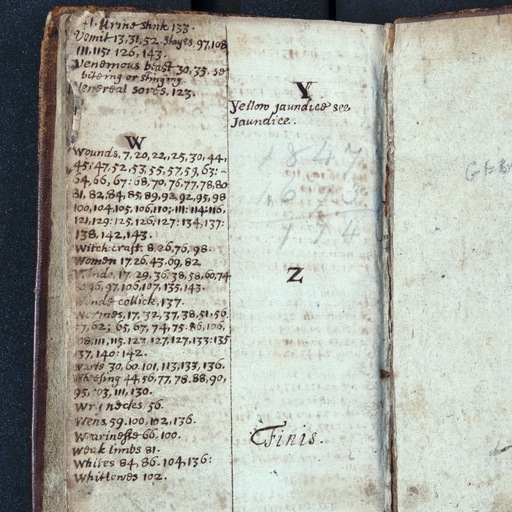 Urine stink 133.
Vomit 13, 31, 52. Stages 97, 108
111, 115: 126, 143.
Venemous beast 30, 35. se
biteing or stinging
Venereal sores. 123.
W
Wounds. 7, 20, 22, 25, 30, 44,
45: 47, 52, 53, 55, 57, 59, 63:
64, 66, 67: 68, 70, 76, 77, 78, 80
81, 82, 84, 85, 89, 92, 92, 95, 98
100, 104, 105, 106, 110, 111: 114: 116,
121, 129: 125, 126, 127: 134, 137:
138, 142, 143.
Witchcraft. 8, 26, 76, 98.
Women 17. 26, 43. 69, 82
Winde, 17. 29, 36, 38, 58, 60, 74
96, 97, 106, 107, 135, 143.
Winde collick, 137.
Wormes, 17, 32, 37, 38, 51, 56.
62; 65, 67, 74, 75. 86, 106,
111, 115. 127, 127, 133: 135
137, 140: 142.
Warts 30, 60. 101, 113, 133, 136.
Wheesing 44, 56, 77, 78. 88, 90,
95, 103, 111, 130.
Wrinckles. 56.
Wens 59. 100, 102, 136.
Wearinesse 66. 100.
Weak limbs 81.
Whites 84, 86. 104, 136:
Whitlowes 102.
Y
Yellow jaundice see
Jaundice.
1847
1673
174
Z
Finis.